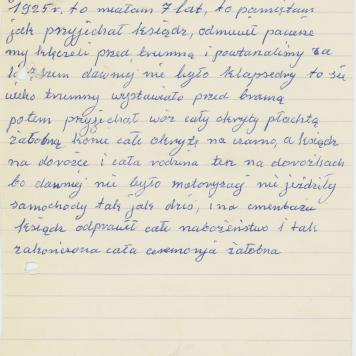 1925r. to miałam 7 lat, to pamiętam
jak przyjechał ksiądz, odmówił pacierze
my klęczeli przed trumną i powtarzaliśmy za
dawniej nie było klapsedry to się
wieko trumny wystawiało przed bramą
potem przyjechał wóz cały okryty płachtą
żałobną konie całe okryte na czarno, a ksiądz
na dorożce i cała rodzina też na dorożkach
bo dawniej nie było motoryzacji nie jeździły
samochody tak jak dziś, i na cmentarzu
ksiądz odprawił całe nabożeństwo i tak
zakończona cała ceremonja żałobna